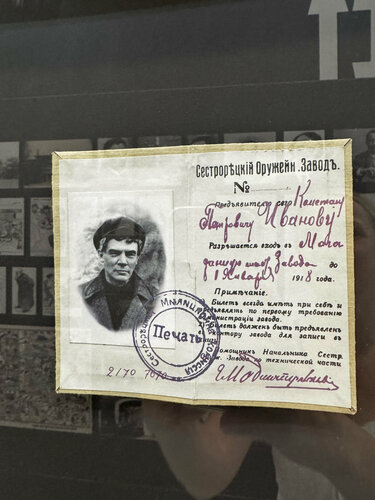 СЕСТРОРѢЦКІЙ ОРУЖЕЙН. ЗАВОДЪ.
№
Предъявителю сего Констант
Петровичу Иванову
Разрѣшается входъ въ Мага
Завода до
1 Января 1918 года.
Примѣчаніе.
Билетъ всегда имѣть при себѣ и
по первому требованію
завода.
долженъ быть предъявленъ
контору завода для записи въ
Помощникъ Начальника Сестр.
Завода по технической части
Печать
2170 7070